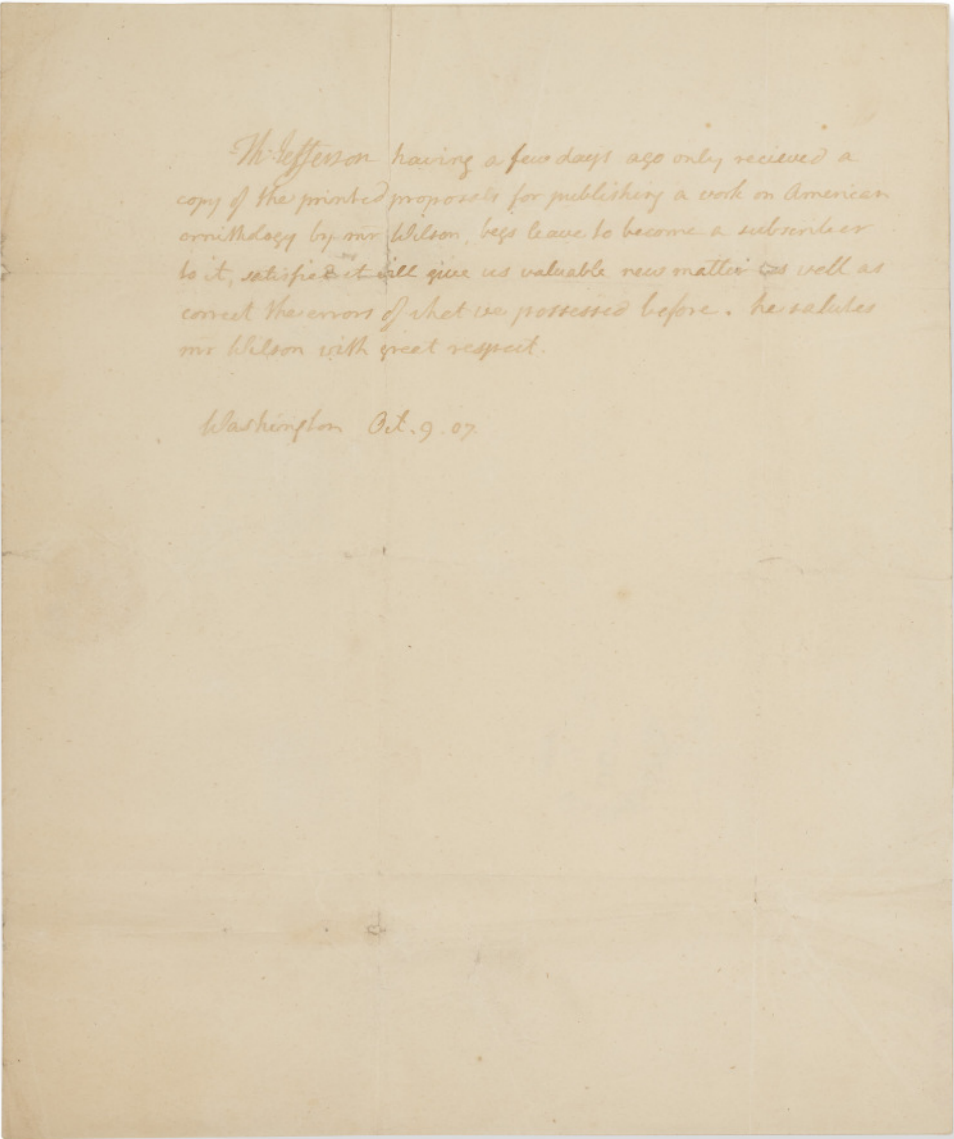 Th: Jefferson having a few days ago only recieved a
copy of the printed proposals for publishing a work on American
ornithology by mr Wilson, begs leave to become a subscriber
to it, satisfied it will give us valuable new matter as well as
correct the errors of what we possessed before. he salutes
mr Wilson with great respect.
Washington Oct. 9. 07.